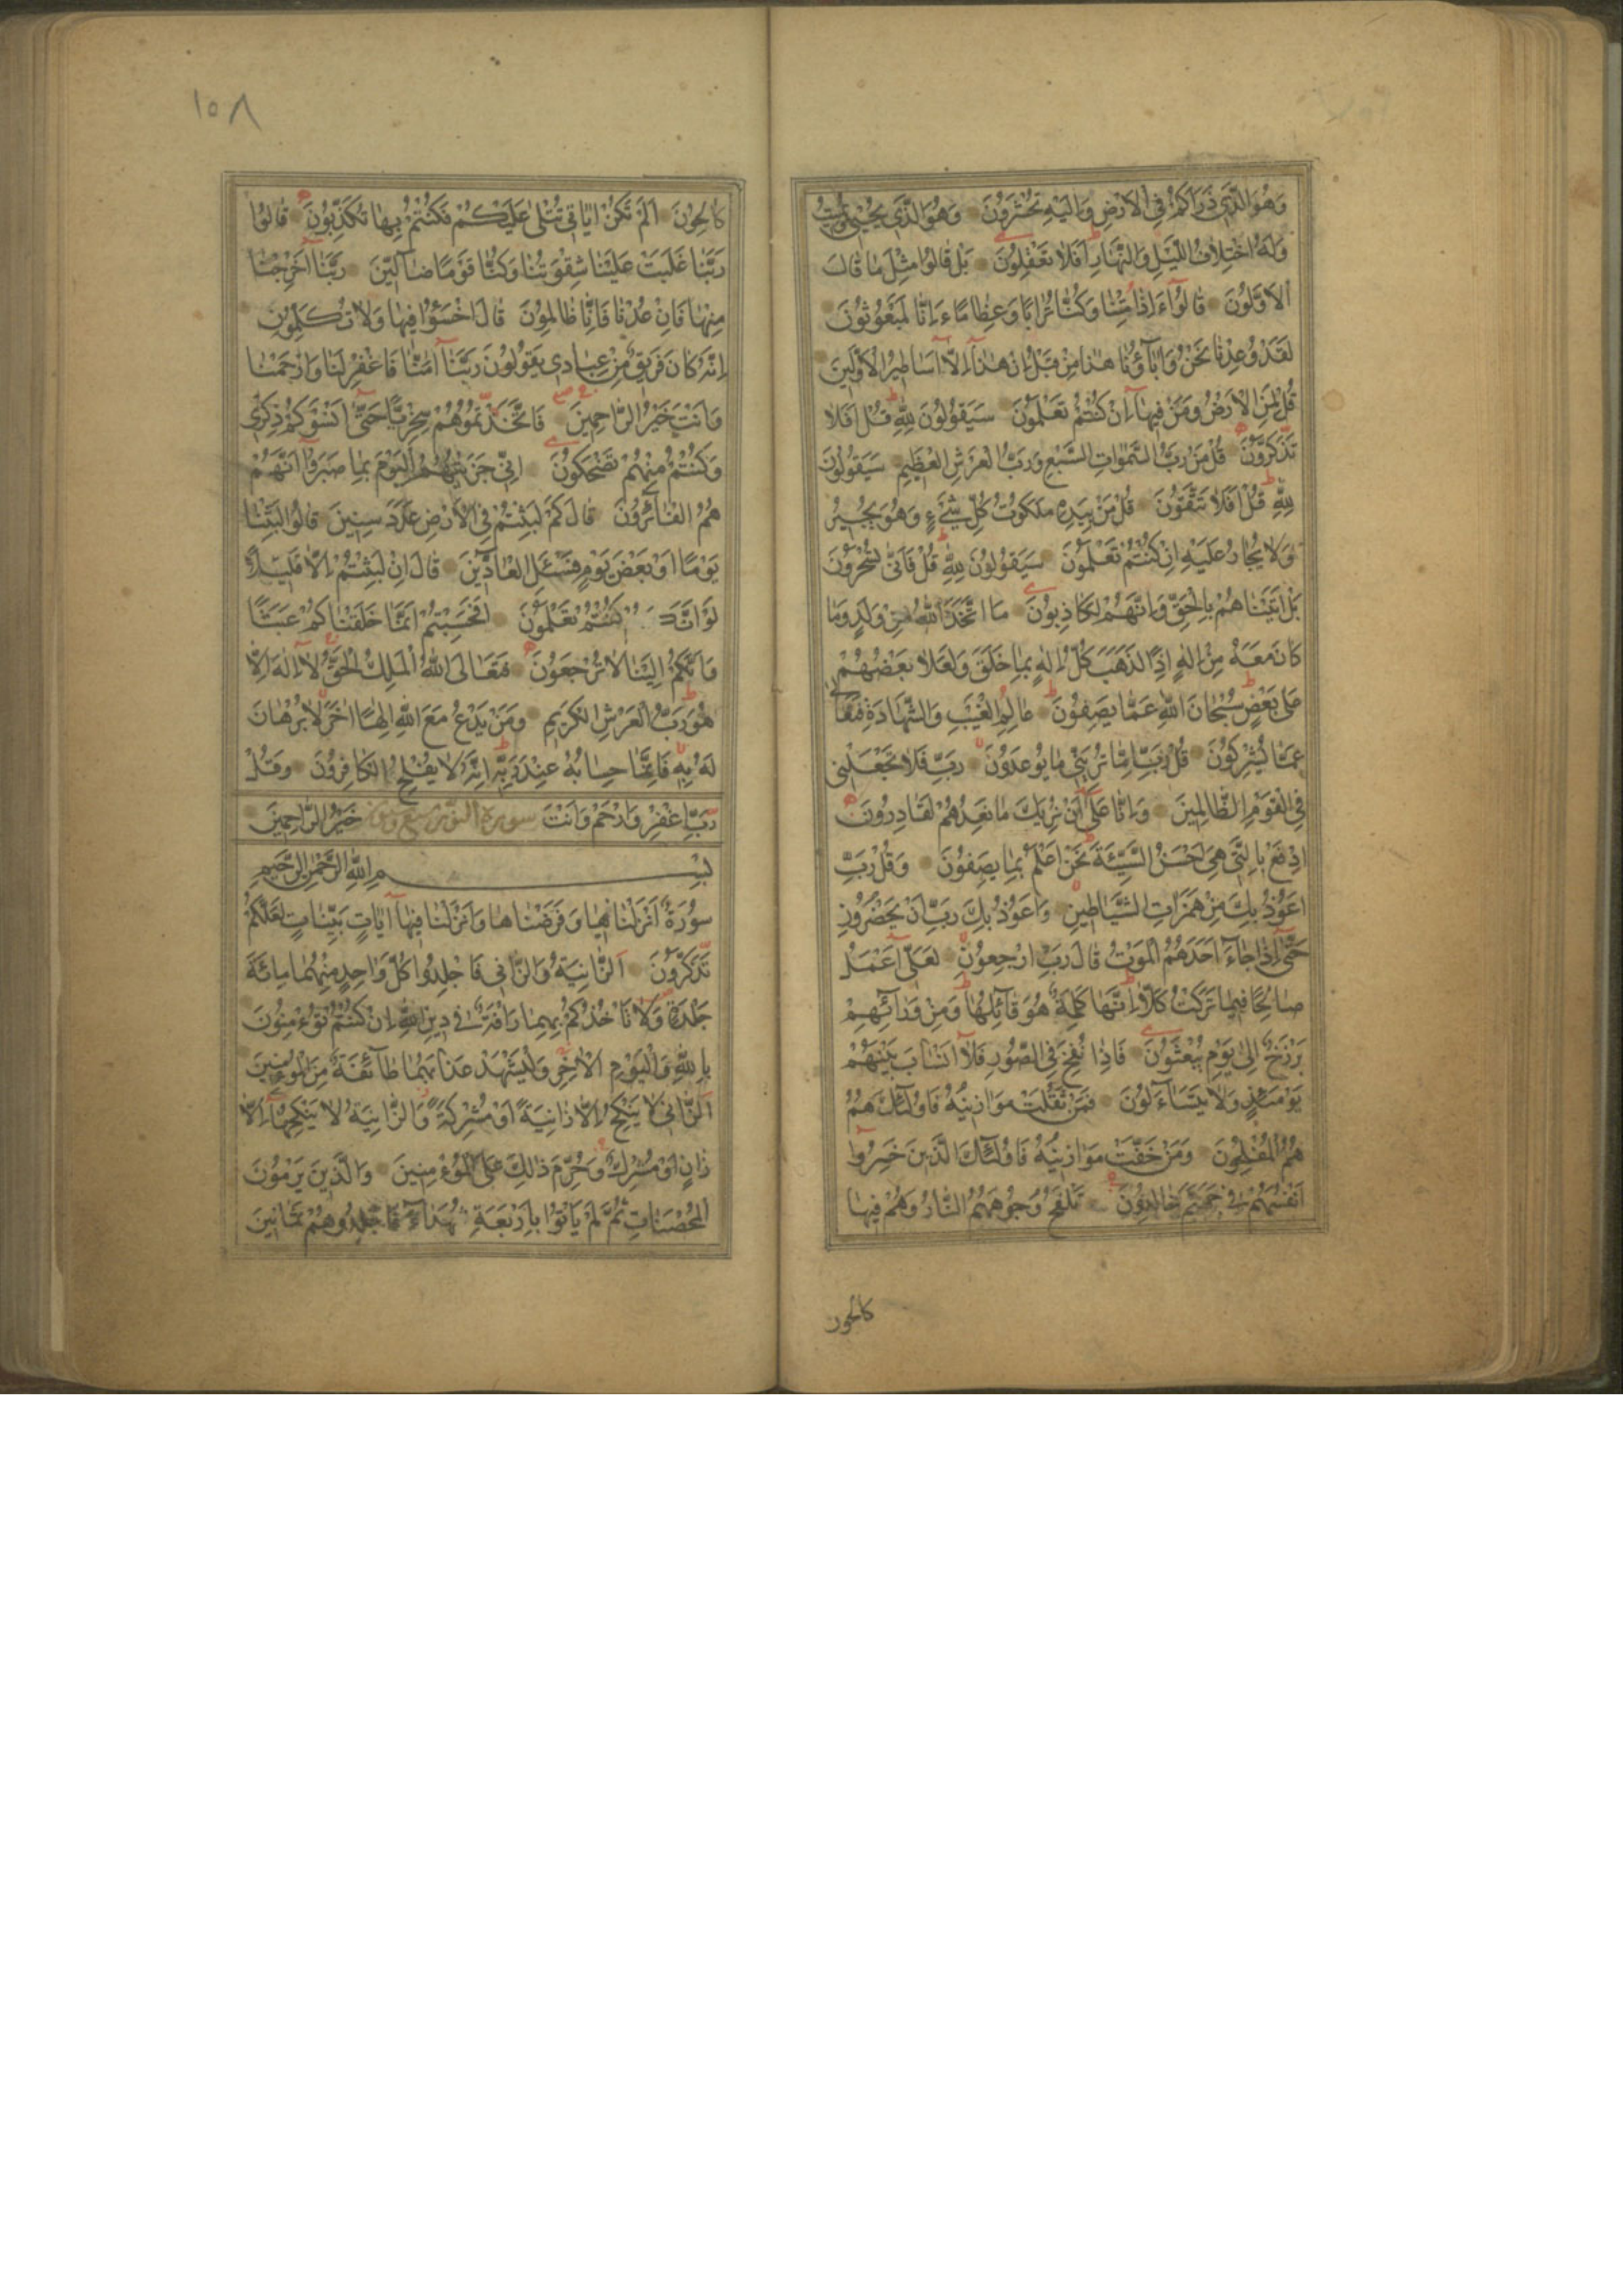 وَهُوَ الَّذِي ذَرَاَكُمْ فِي الْاَرْضِ وَاِلَيْهِ تُحْشَرُونَ وَهُوَ الَّذِي يُحْيِي وَيُمِيتُ
وَلَهُ اخْتِلَافُ اللَّيْلِ وَالنَّهَارِ اَفَلَا تَعْقِلُونَ بَلْ قَالُوا مِثْلَ مَا قَالَ
الْاَوَّلُونَ قَالُوا ءَاِذَا مِتْنَا وَكُنَّا تُرَابًا وَعِظَامًا ءَاِنَّا لَمَبْعُوثُونَ
لَقَدْ وُعِدْنَا نَحْنُ وَاٰبَآؤُنَا هٰذَا مِنْ قَبْلُ اِنْ هٰذَآ اِلَّآ اَسَاطِيرُ الْاَوَّلِينَ
قُلْ لِمَنِ الْاَرْضُ وَمَنْ فِيهَآ اِنْ كُنْتُمْ تَعْلَمُونَ سَيَقُولُونَ لِلّٰهِ قُلْ اَفَلَا
تَذَكَّرُونَ قُلْ مَنْ رَبُّ السَّمٰوَاتِ السَّبْعِ وَرَبُّ الْعَرْشِ الْعَظِيمِ سَيَقُولُونَ
لِلّٰهِ قُلْ اَفَلَا تَتَّقُونَ قُلْ مَنْ بِيَدِهِ مَلَكُوتُ كُلِّ شَيْءٍ وَهُوَ يُجِيرُ
وَلَا يُجَارُ عَلَيْهِ اِنْ كُنْتُمْ تَعْلَمُونَ سَيَقُولُونَ لِلّٰهِ قُلْ فَاَنّٰى تُسْحَرُونَ
بَلْ اَتَيْنَاهُمْ بِالْحَقِّ وَاِنَّهُمْ لَكَاذِبُونَ مَا اتَّخَذَ اللّٰهُ مِنْ وَلَدٍ وَمَا
كَانَ مَعَهُ مِنْ اِلٰهٍ اِذًا لَذَهَبَ كُلُّ اِلٰهٍ بِمَا خَلَقَ وَلَعَلَا بَعْضُهُمْ
عَلٰى بَعْضٍ سُبْحَانَ اللّٰهِ عَمَّا يَصِفُونَ عَالِمِ الْغَيْبِ وَالشَّهَادَةِ فَتَعَالٰى
عَمَّا يُشْرِكُونَ قُلْ رَبِّ اِمَّا تُرِيَنِّي مَا يُوعَدُونَ رَبِّ فَلَا تَجْعَلْنِي
فِي الْقَوْمِ الظَّالِمِينَ وَاِنَّا عَلٰٓى اَنْ نُرِيَكَ مَا نَعِدُهُمْ لَقَادِرُونَ
اِدْفَعْ بِالَّتِي هِيَ اَحْسَنُ السَّيِّئَةَ نَحْنُ اَعْلَمُ بِمَا يَصِفُونَ وَقُلْ رَبِّ
اَعُوذُ بِكَ مِنْ هَمَزَاتِ الشَّيَاطِينِ وَاَعُوذُ بِكَ رَبِّ اَنْ يَحْضُرُونِ
حَتّٰٓى اِذَا جَآءَ اَحَدَهُمُ الْمَوْتُ قَالَ رَبِّ ارْجِعُونِ لَعَلِّي اَعْمَلُ
صَالِحًا فِيمَا تَرَكْتُ كَلَّا اِنَّهَا كَلِمَةٌ هُوَ قَآئِلُهَا وَمِنْ وَرَآئِهِمْ
بَرْزَخٌ اِلٰى يَوْمِ يُبْعَثُونَ فَاِذَا نُفِخَ فِي الصُّورِ فَلَآ اَنْسَابَ بَيْنَهُمْ
يَوْمَئِذٍ وَلَا يَتَسَآءَلُونَ فَمَنْ ثَقُلَتْ مَوَازِينُهُ فَاُولٰٓئِكَ هُمُ
هُمُ الْمُفْلِحُونَ وَمَنْ خَفَّتْ مَوَازِينُهُ فَاُولٰٓئِكَ الَّذِينَ خَسِرُوا
اَنْفُسَهُمْ فِي جَهَنَّمَ خَالِدُونَ تَلْفَحُ وُجُوهَهُمُ النَّارُ وَهُمْ فِيهَا
كالحون
١٥٨
كَالِحُونَ اَلَمْ تَكُنْ اٰيَاتِي تُتْلٰى عَلَيْكُمْ فَكُنْتُمْ بِهَا تُكَذِّبُونَ قَالُوا
رَبَّنَا غَلَبَتْ عَلَيْنَا شِقْوَتُنَا وَكُنَّا قَوْمًا ضَآلِّينَ رَبَّنَآ اَخْرِجْنَا
مِنْهَا فَاِنْ عُدْنَا فَاِنَّا ظَالِمُونَ قَالَ اخْسَؤُا فِيهَا وَلَا تُكَلِّمُونِ
اِنَّهُ كَانَ فَرِيقٌ مِنْ عِبَادِي يَقُولُونَ رَبَّنَآ اٰمَنَّا فَاغْفِرْ لَنَا وَارْحَمْنَا
وَاَنْتَ خَيْرُ الرَّاحِمِينَ فَاتَّخَذْتُمُوهُمْ سِخْرِيًّا حَتّٰٓى اَنْسَوْكُمْ ذِكْرِي
وَكُنْتُمْ مِنْهُمْ تَضْحَكُونَ اِنِّي جَزَيْتُهُمُ الْيَوْمَ بِمَا صَبَرُوا اَنَّهُمْ
هُمُ الْفَآئِزُونَ قَالَ كَمْ لَبِثْتُمْ فِي الْاَرْضِ عَدَدَ سِنِينَ قَالُوا لَبِثْنَا
يَوْمًا اَوْ بَعْضَ يَوْمٍ فَسْئَلِ الْعَآدِّينَ قَالَ اِنْ لَبِثْتُمْ اِلَّا قَلِيلًا
لَوْ اَنَّكُمْ كُنْتُمْ تَعْلَمُونَ اَفَحَسِبْتُمْ اَنَّمَا خَلَقْنَاكُمْ عَبَثًا
وَاَنَّكُمْ اِلَيْنَا لَا تُرْجَعُونَ فَتَعَالَى اللّٰهُ الْمَلِكُ الْحَقُّ لَآ اِلٰهَ اِلَّا
هُوَ رَبُّ الْعَرْشِ الْكَرِيمِ وَمَنْ يَدْعُ مَعَ اللّٰهِ اِلٰهًا اٰخَرَ لَا بُرْهَانَ
لَهُ بِهِ فَاِنَّمَا حِسَابُهُ عِنْدَ رَبِّهِ اِنَّهُ لَا يُفْلِحُ الْكَافِرُونَ وَقُلْ
رَبِّ اغْفِرْ وَارْحَمْ وَاَنْتَ سورة النور خَيْرُ الرَّاحِمِينَ
بِسْمِ اللّٰهِ الرَّحْمٰنِ الرَّحِيمِ
سُورَةٌ اَنْزَلْنَاهَا وَفَرَضْنَاهَا وَاَنْزَلْنَا فِيهَآ اٰيَاتٍ بَيِّنَاتٍ لَعَلَّكُمْ
تَذَكَّرُونَ اَلزَّانِيَةُ وَالزَّانِي فَاجْلِدُوا كُلَّ وَاحِدٍ مِنْهُمَا مِائَةَ
جَلْدَةٍ وَلَا تَاْخُذْكُمْ بِهِمَا رَاْفَةٌ فِي دِينِ اللّٰهِ اِنْ كُنْتُمْ تُؤْمِنُونَ
بِاللّٰهِ وَالْيَوْمِ الْاٰخِرِ وَلْيَشْهَدْ عَذَابَهُمَا طَآئِفَةٌ مِنَ الْمُؤْمِنِينَ
اَلزَّانِي لَا يَنْكِحُ اِلَّا زَانِيَةً اَوْ مُشْرِكَةً وَالزَّانِيَةُ لَا يَنْكِحُهَآ اِلَّا
زَانٍ اَوْ مُشْرِكٌ وَحُرِّمَ ذٰلِكَ عَلَى الْمُؤْمِنِينَ وَالَّذِينَ يَرْمُونَ
الْمُحْصَنَاتِ ثُمَّ لَمْ يَاْتُوا بِاَرْبَعَةِ شُهَدَآءَ فَاجْلِدُوهُمْ ثَمَانِينَ